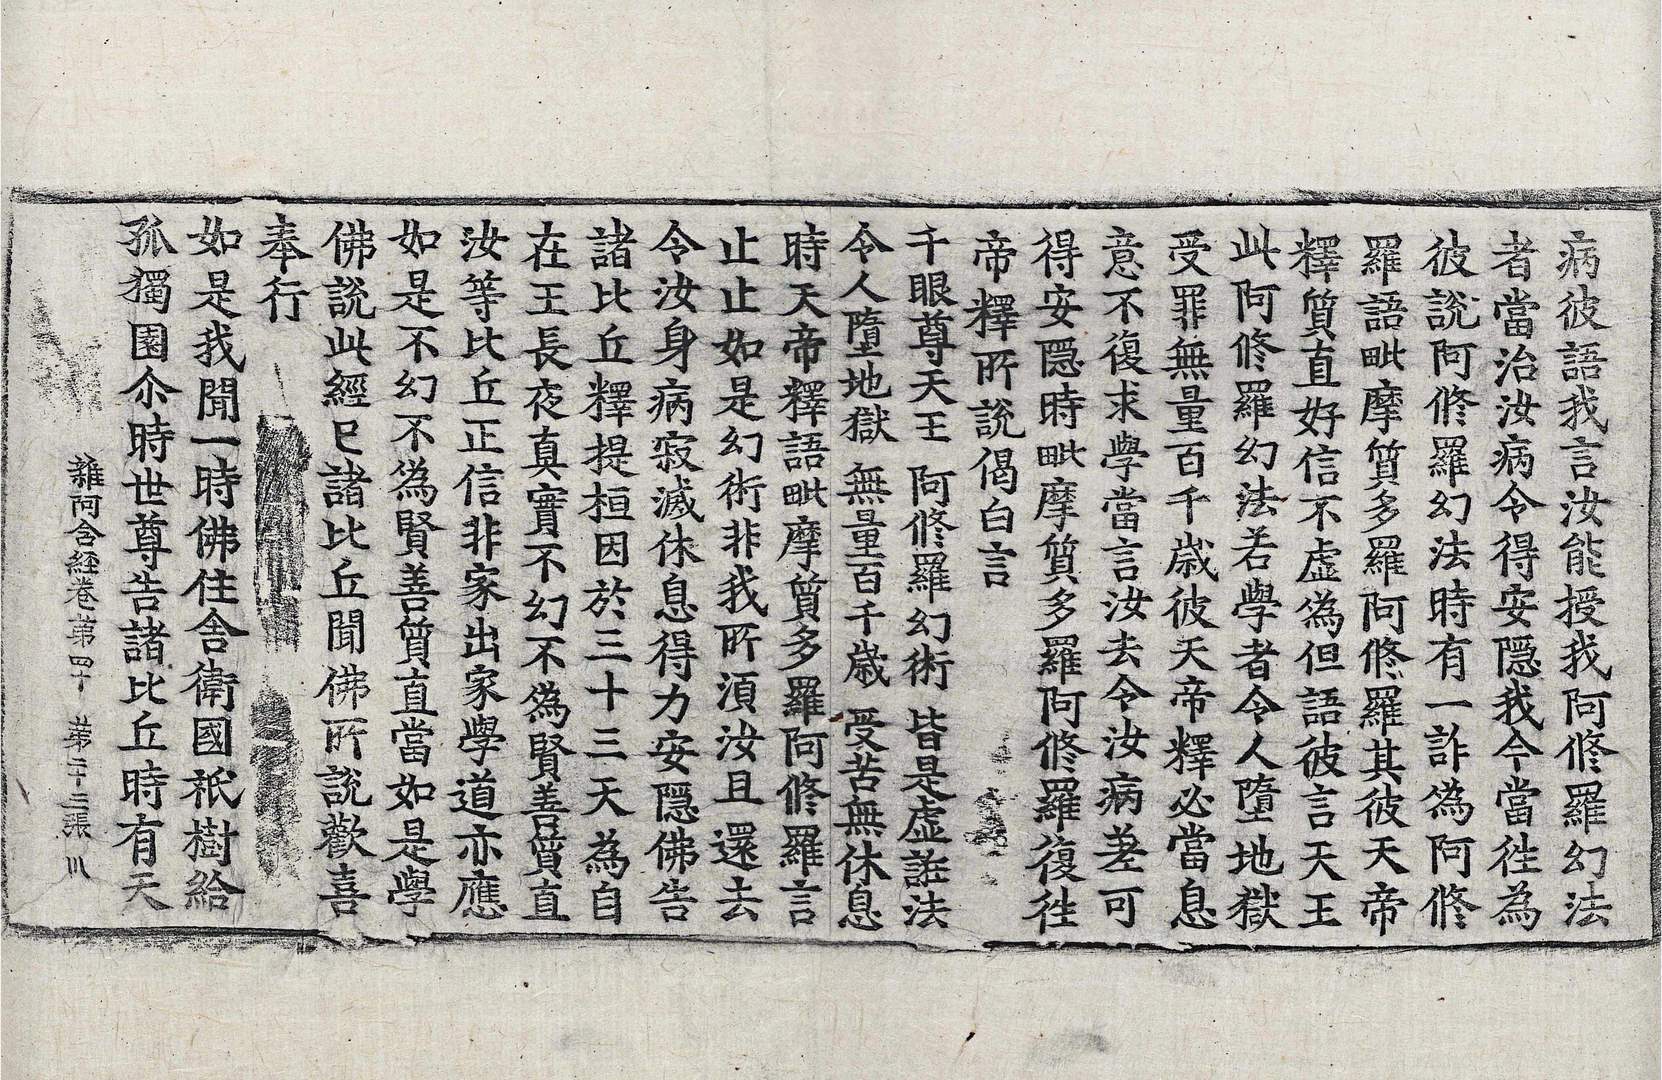 病彼語我言汝能授我阿修羅幻法
者當治汝病令得安隱我今當徃為
彼說阿修羅幻法時有一詐偽阿修
羅語毗摩質多羅阿修羅其彼天帝
釋質直好信不虛偽但語彼言天王
此阿修羅幻法若學者令人墮地獄
受罪無量百千歲彼天帝釋必當息
意不復求學當言汝去令汝病差可
得安隱時毗摩質多羅阿修羅復徃
帝釋所說偈白言
千眼尊天王 阿修羅幻術 皆是虛誑法
令人墮地獄 無量百千歲 受苦無休息
時天帝釋語毗摩質多羅阿修羅言
止止如是幻術非我所湏汝且還去
令汝身病寂滅休息得力安隱佛告
諸比丘釋提桓因於三十三天為自
在王長夜真實不幻不偽賢善質直
汝等比丘正信非家出家學道亦應
如是不幻不偽賢善質直當如是學
佛說此經已諸比丘聞佛所說歡喜
奉行
如是我聞一時佛住舍衛國祇樹給
孤獨園尒時世尊告諸比丘時有天
雜阿含經卷第四十 第二十三張